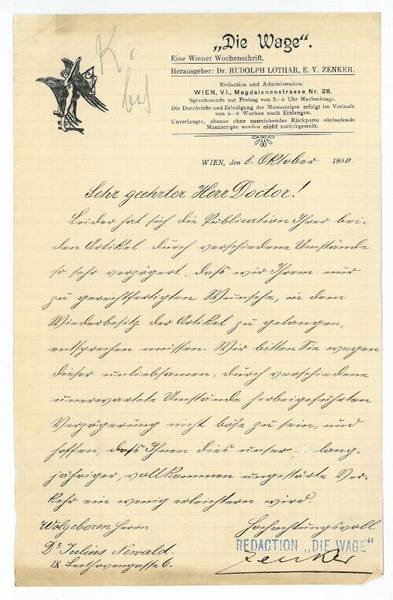 K.
„Die Wage“.
Eine Wiener Wochenschrift.
Herausgeber: Dr. RUDOLPH LOTHAR, E. V. ZENKER.
Redaction und Administration:
WIEN, VI., Magdalenenstrasse Nr. 28.
Sprechstunde nur Freitag von 5—6 Uhr Nachmittags.
Die Durchsicht und Erledigung der Manuscripte erfolgt im Verlaufe
von 6—8 Wochen nach Einlangen.
Unverlangte, ebenso ohne ausreichendes Rückporto einlaufende
Manuscripte werden nicht zurückgestellt.
WIEN, den 8. Oktober 1900.
Sehr geehrter Herr Doctor!
Leider hat sich die Publication Ihrer bei-
den Artikel durch verschiedene Umstände
so sehr verzögert, daß wir Ihrem nur
zu gerechtfertigten Wunsche, in den
Wiederbesitz der Artikel zu gelangen,
entsprechen müssen. Wir bitten Sie wegen
dieser unliebsamen, durch verschiedene
unerwartete Umstände herbeigeführten
Verzögerung nicht böse zu sein, und
hoffen, daß Ihnen dies unser lang-
jähriger, vollkommen ungestörte Ver-
kehr ein wenig erleichtern wird.
Wolgeboren Herrn
Hochachtungsvoll
Dr. Julius Newald.
REDACTION „DIE WAGE“
IX Beethovengasse 6.
Zenker